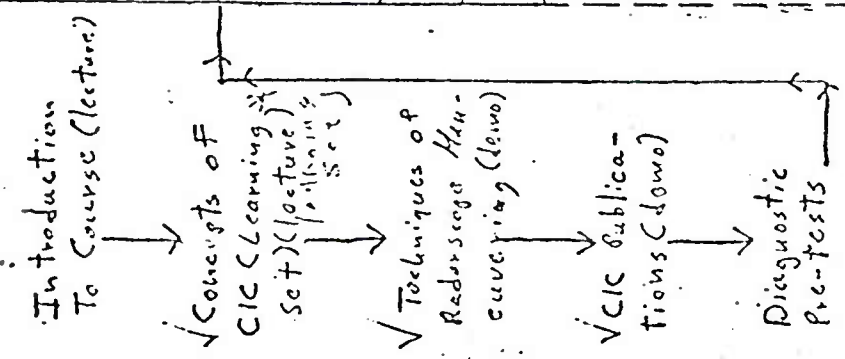 Introduction
To Course (lecture)
√Concepts of
CIC (Learning
set) (lecture)
√ Techniques of
Radarscope Man-
euvering (demo)
√CIC Publica-
tions (demo)
Diagnostic
Pre-tests